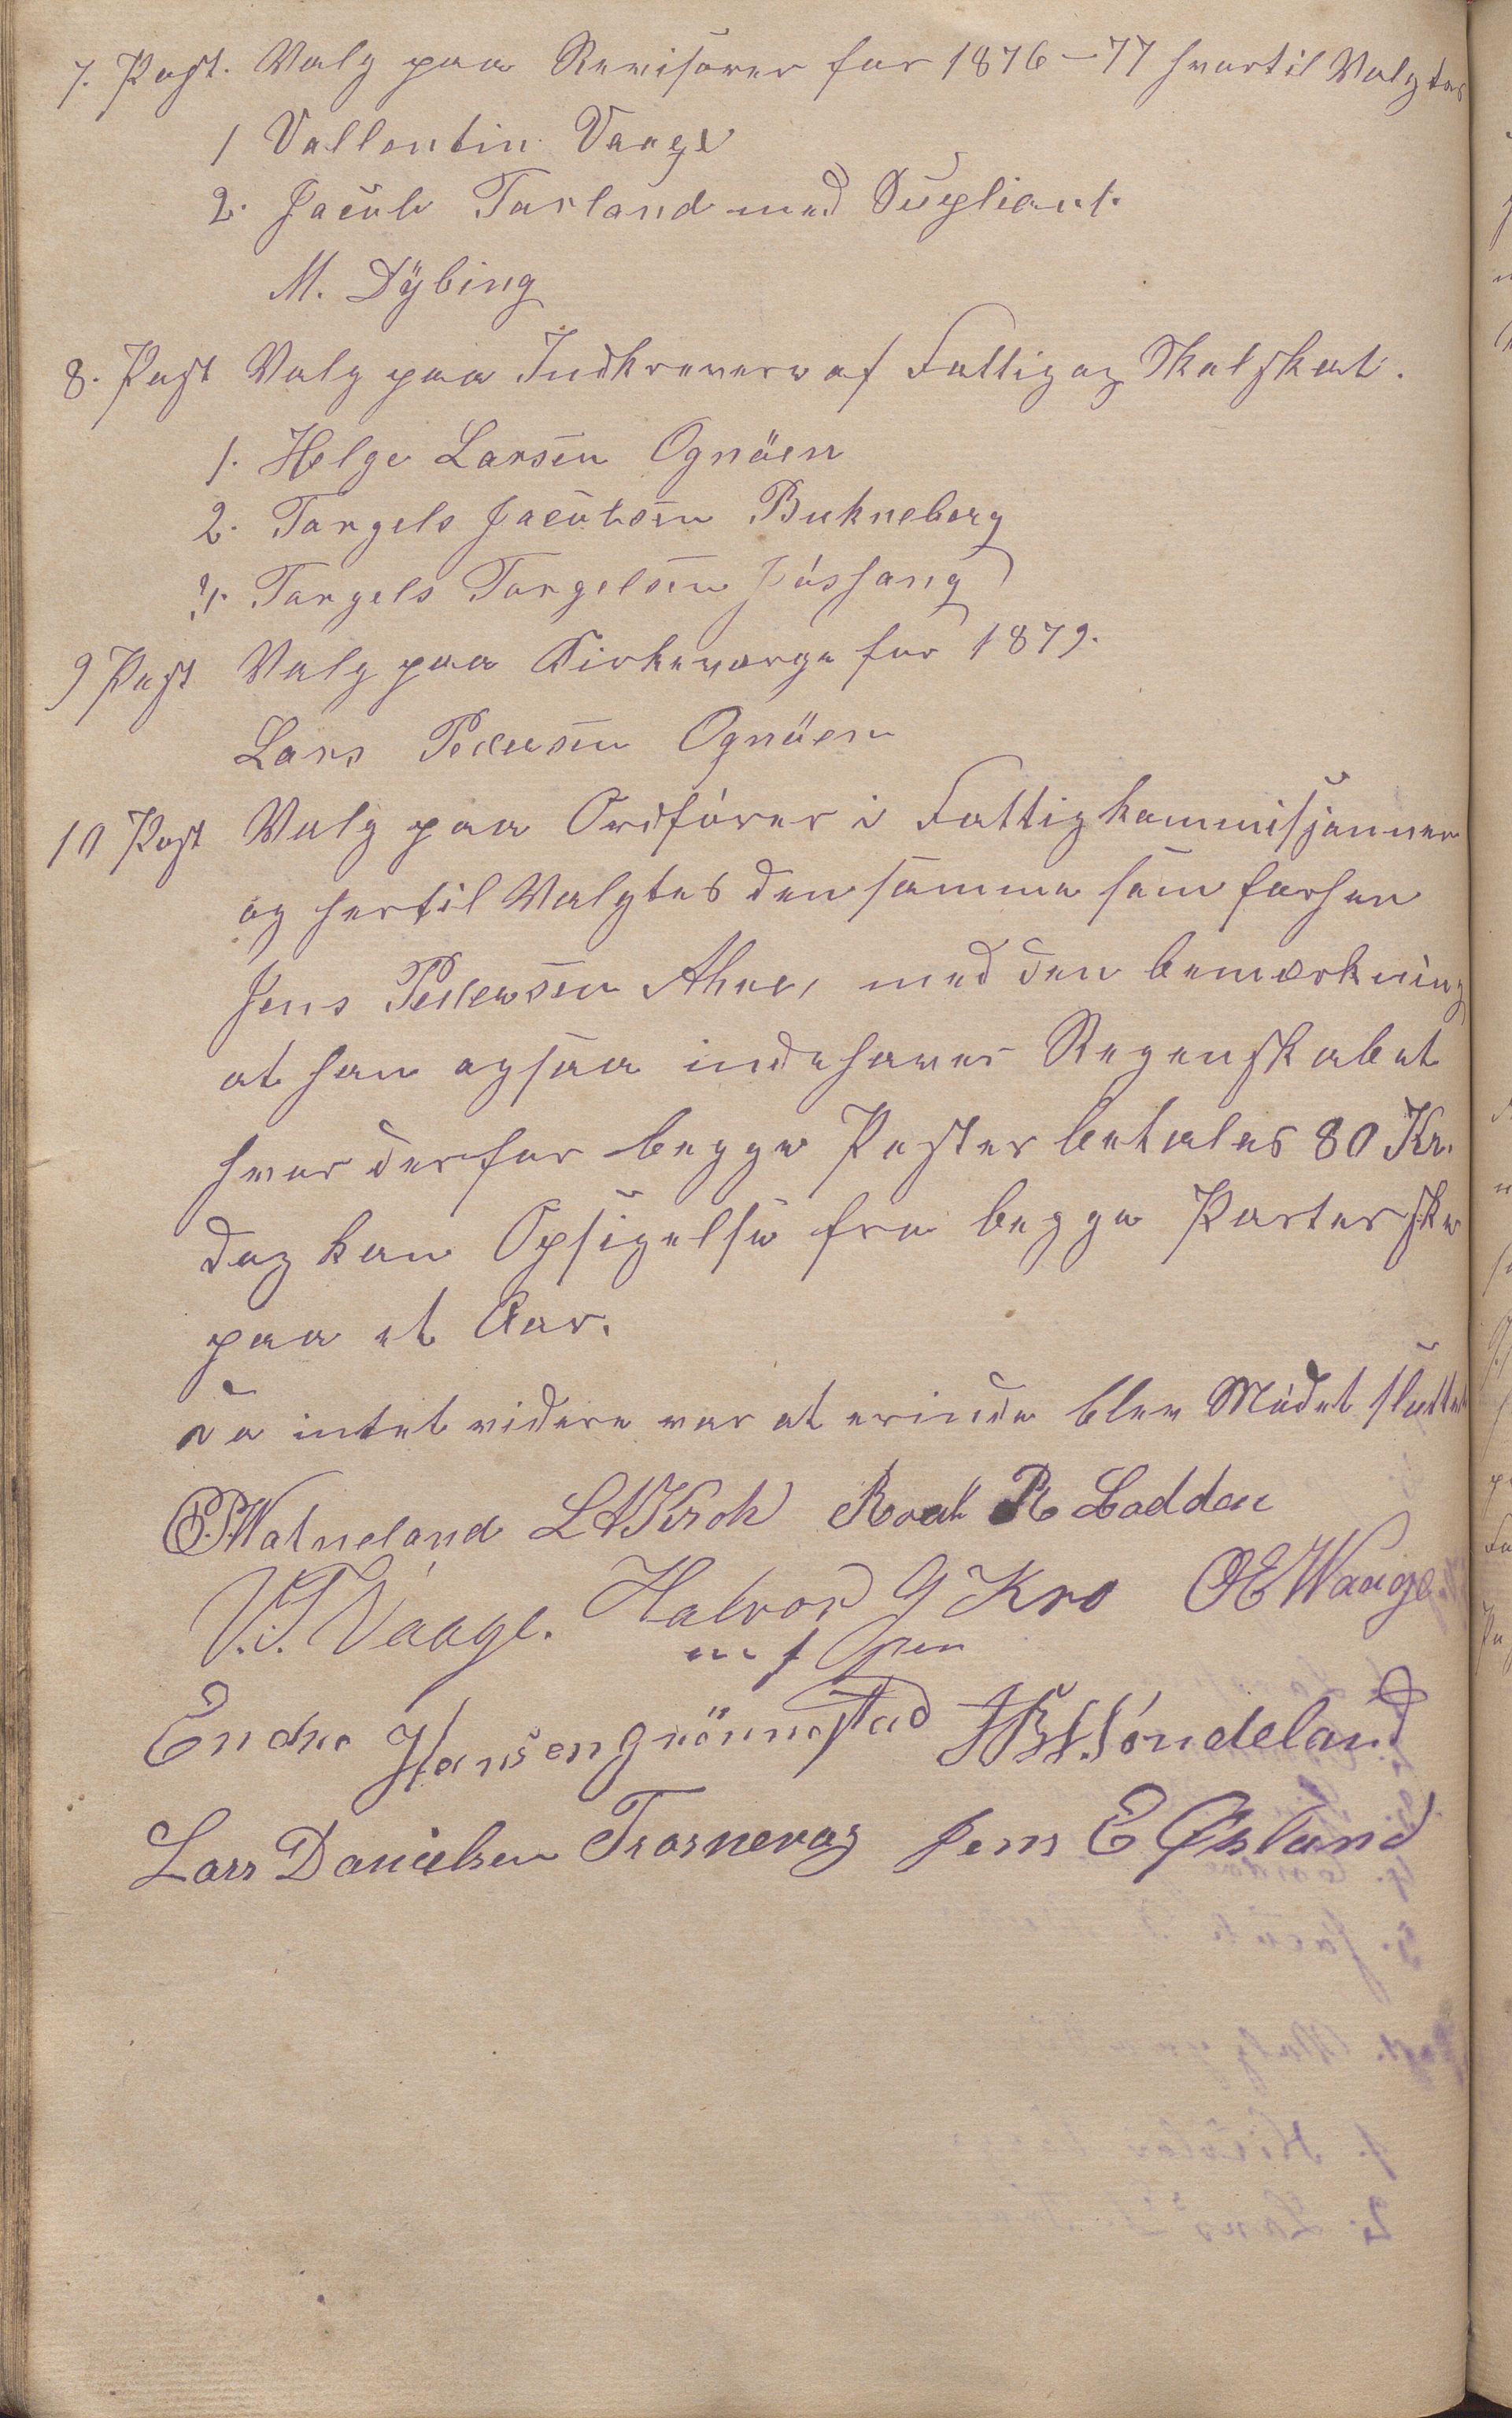 7. Post. Valg paa Revisorer for 1876-77 hvortil Valgtes
1 Vallentin Vaage
2. Jacob Torland med Supliant
M. Dÿbing
8. Post Valg paa Indkrevere af Fattig og Skolskat.
1. Helge Larsen Ognöen
2. Torgels Jacobsen Bukneberg
3. Torgels Torgelsen
9 Post Valg paa Kirkeværge for 1879.
Lars Pedersen Ognöen
10 Post Valg paa Ordfórer i Fattigkommisjonnen
og hertil Valgtes den samme som forhen
Jens Pedersen med den bemærkning
at han ogsaa indehaver Regenskabet
hvor derfor begge Poster betales 80 Kr.
dog kan Opsigelse fra begge Parter ske
paa et Aar.
Da intet videre var at erindre blev Módet sluttet
P. Watneland L A Kroh Roal R Loddan
V. T. Vaage. Halvor G Kro O E Waage
m f Pen
Endre Hansen Grönnestad Sóndeland
Lars Danielsen Trosnevag Jens E Østand